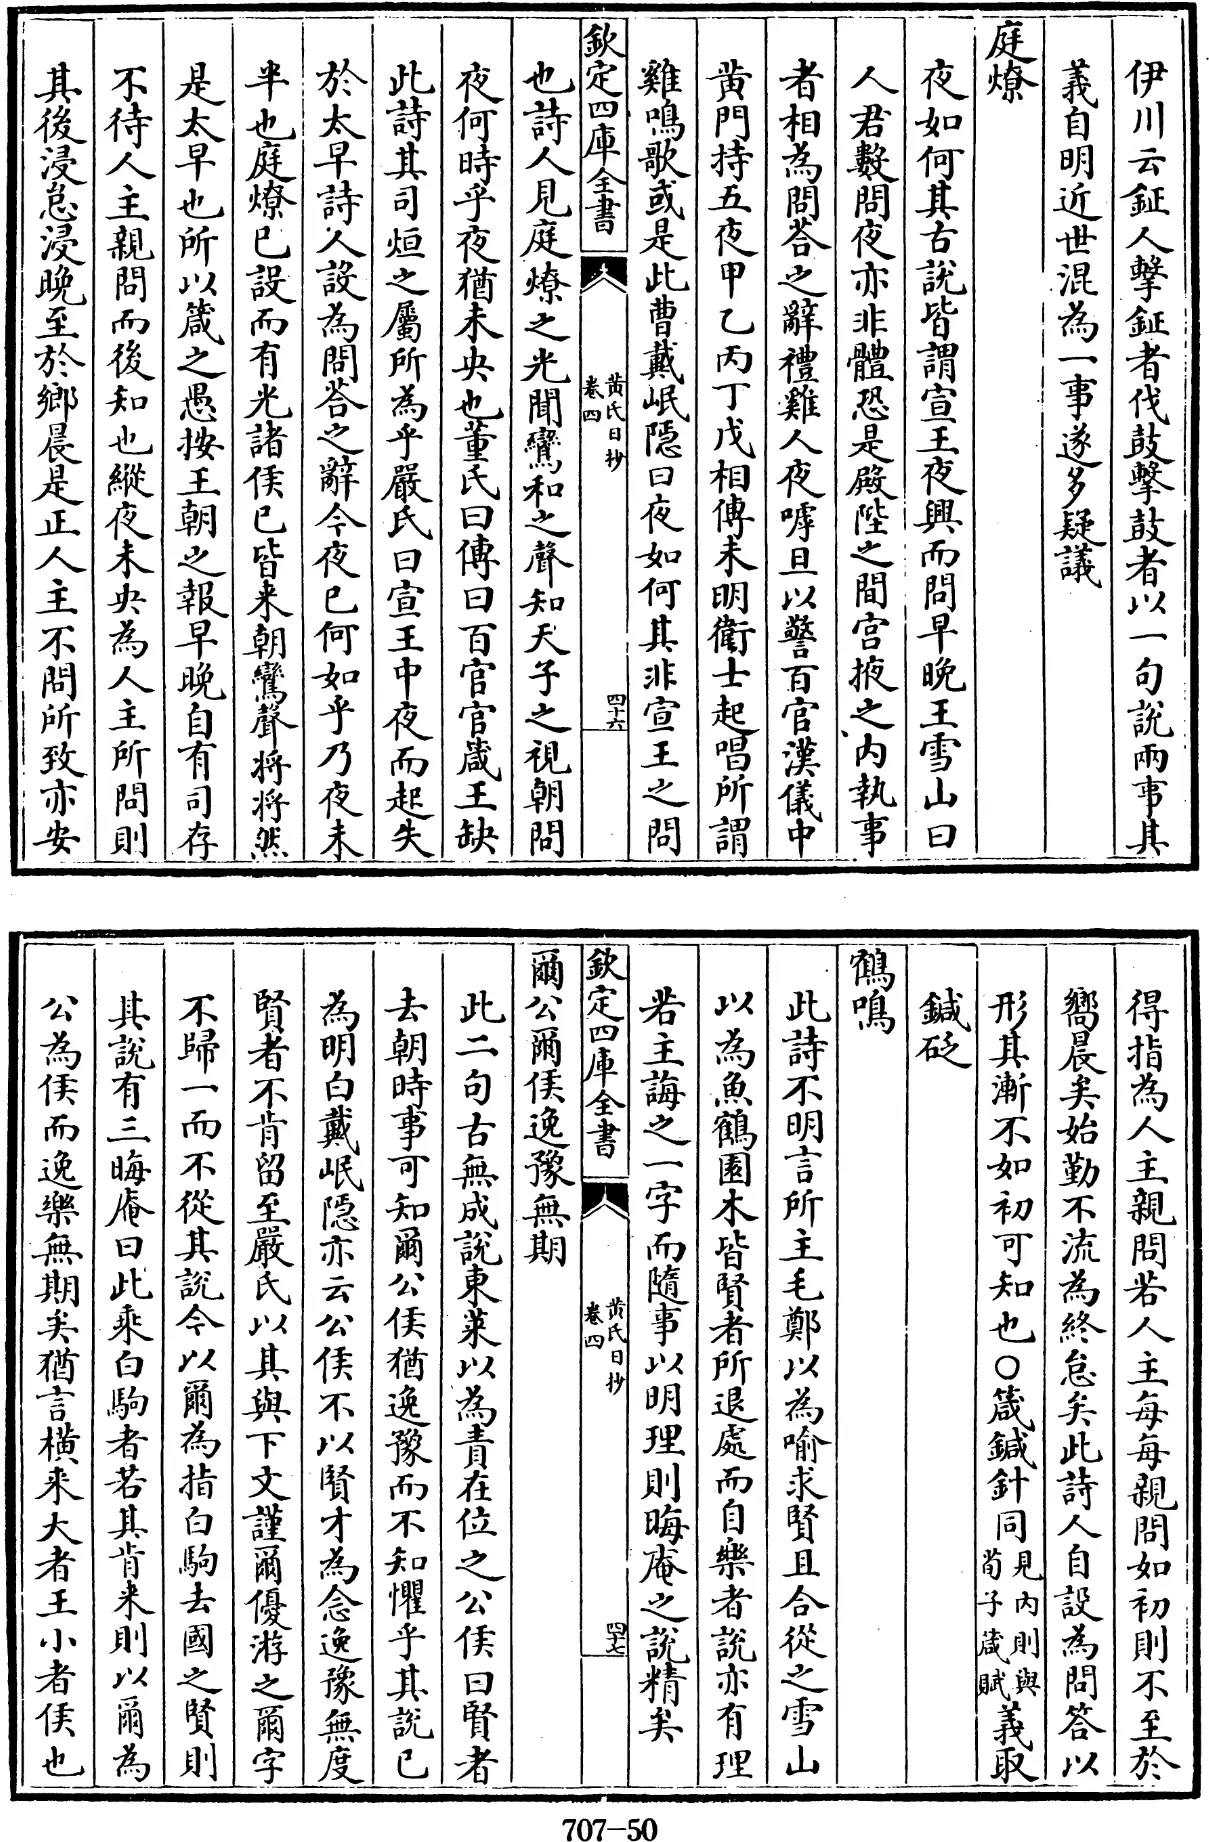 伊川云鉦人擊鉦者伐鼓擊鼓者以一句說兩事其
義自明近世混為一事遂多疑議
庭燎
夜如何其古說皆謂宣王夜興而問早晚王雪山曰
人君數問夜亦非體恐是殿陛之間宫掖之内執事
者相為問荅之辭禮雞人夜嘑旦以警百官漢儀中
黄門持五夜甲乙丙丁戊相傳未明衛士起唱所謂
雞鳴歌或是此曹戴岷隱曰夜如何其非宣王之問
欽定四庫全書
黄氏日抄
卷四
四十六
也詩人見庭燎之光聞鸞和之聲知天子之視朝問
夜何時乎夜猶未央也董氏曰傳曰百官官箴王缺
此詩其司烜之屬所為乎嚴氏曰宣王中夜而起失
於太早詩人設為問荅之辭今夜已何如乎乃夜未
半也庭燎已設而有光諸侯已皆来朝鸞聲將將然
是太早也所以箴之愚按王朝之報早晚自有司存
不待人主親問而後知也縱夜未央為人主所問則
其後浸怠浸晚至於鄉晨是正人主不問所致亦安
得指為人主親問若人主每每親問如初則不至於
嚮晨矣始勤不流為終怠矣此詩人自設為問答以
形其漸不如初可知也○箴鍼針同見内則與荀子箴賦義取
鍼砭
鶴鳴
此詩不明言所主毛鄭以為喻求賢且合從之雪山
以為魚鶴園木皆賢者所退處而自樂者說亦有理
若主誨之一字而隨事以明理則晦庵之說精矣
欽定四庫全書
黄氏日抄
卷四
四十七
爾公爾侯逸豫無期
此二句古無成說東萊以為責在位之公侯曰賢者
去朝時事可知爾公侯猶逸豫而不知懼乎其說已
為明白戴岷隱亦云公侯不以賢才為念逸豫無度
賢者不肯留至嚴氏以其與下文謹爾優游之爾字
不歸一而不從其說今以爾為指白駒去國之賢則
其說有三晦庵曰此乘白駒者若其肯来則以爾為
公為侯而逸樂無期矣猶言橫来大者王小者侯也
707-50